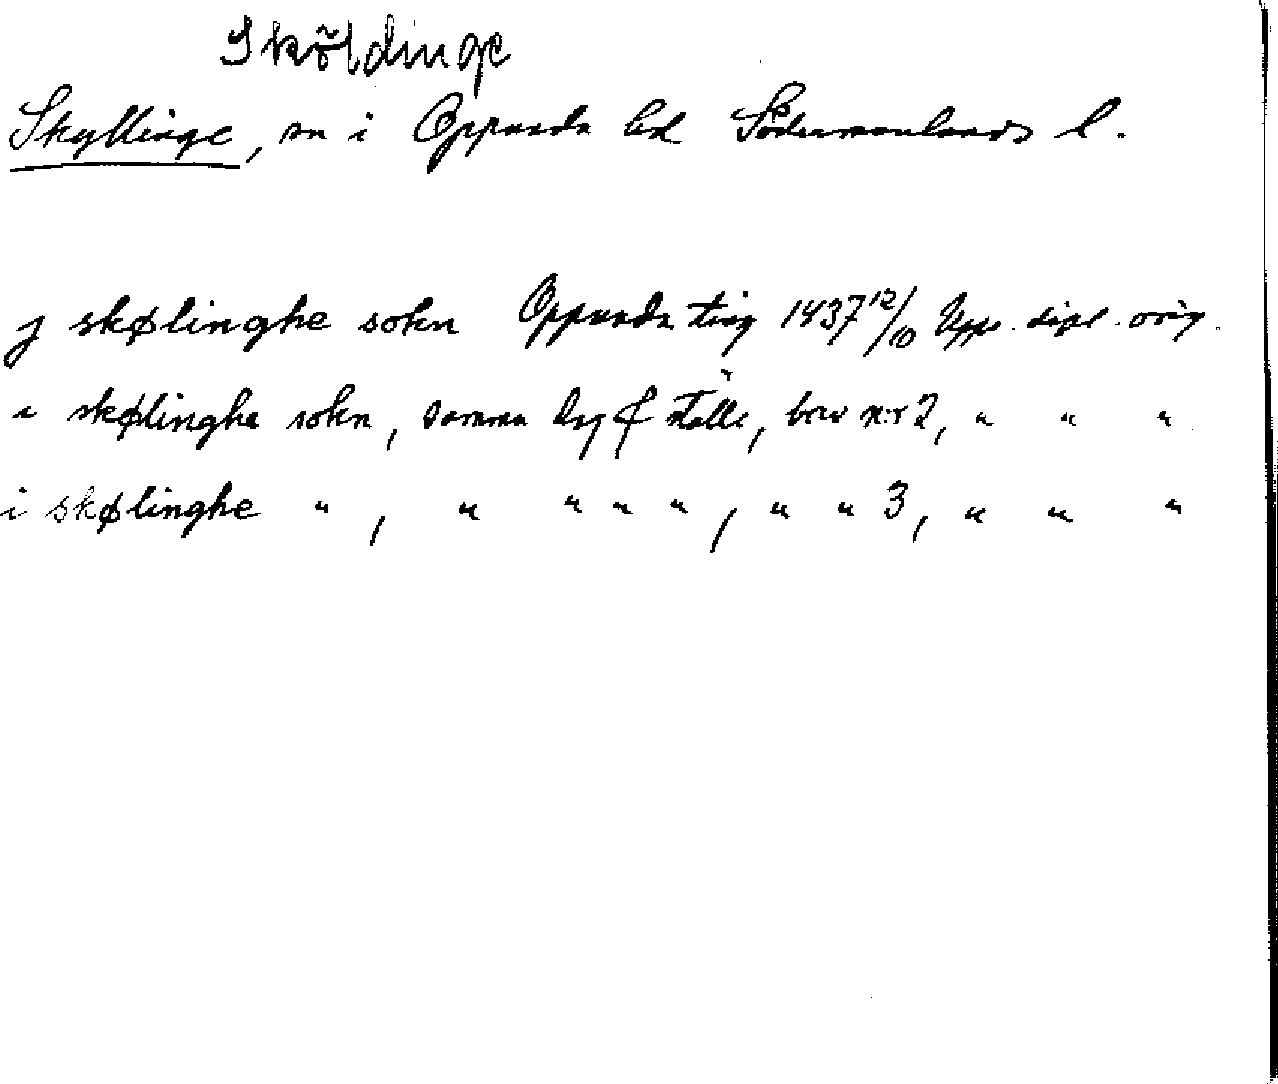 Sköldinge
Skyllinge, sn i Oppunda hd Södermanlands l.
j skølinghe sokn Oppunda ting 1437 12/10 Upps. dipl. orig.
i skølinghe sokn, samma dag & ställe, brev n:r 2, " " "
i skølinghe " , " " " " , " " 3, " " "